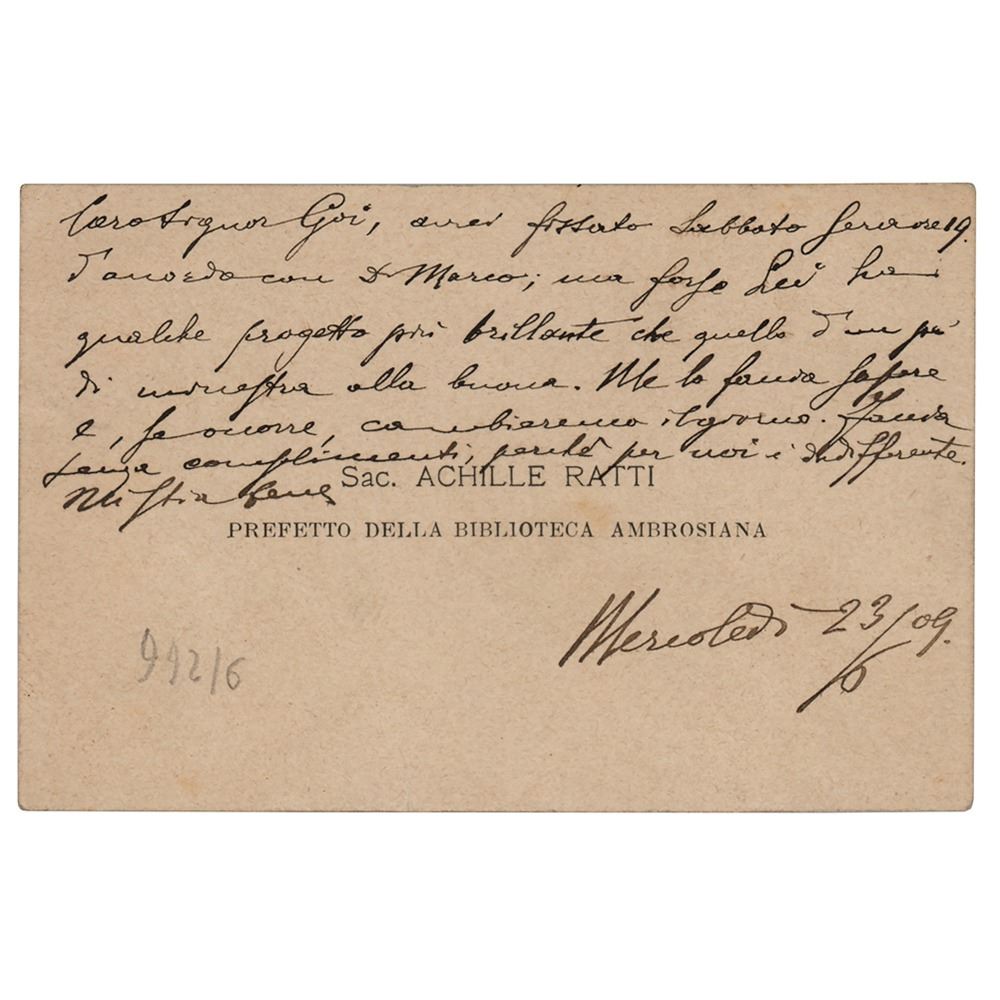 Caro Signor Goi, avrei fissato Sabbato sera ore 19.
d'accordo con Dr Marco; ma forse Lei ha
qualche progetto più brillante che quello d'un po'
di minestra alla buona. Me lo faccia sapere
e, se occorre, cambieremo il giorno. Faccia
senza complimenti, perchè per noi è indifferente.
Mi stia bene
Sac. ACHILLE RATTI
PREFETTO DELLA BIBLIOTECA AMBROSIANA
Mercoledì 23/6 09.
992/6